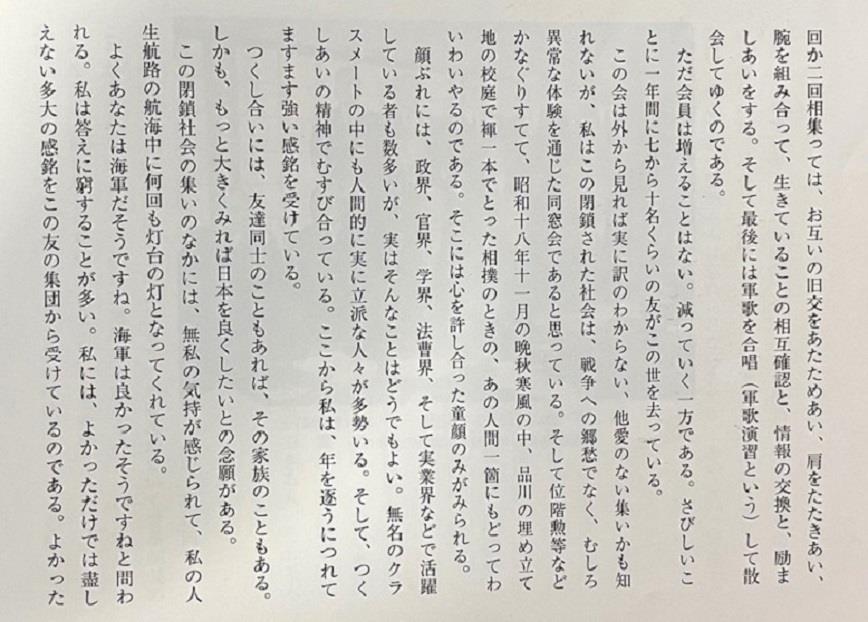 回か二回相集っては、お互いの旧交をあたためあい、肩をたたきあい、
腕を組み合って、生きていることの相互確認と、情報の交換と、励ま
しあいをする。そして最後には軍歌を合唱（軍歌演習という）して散
会してゆくのである。
ただ会員は増えることはない。減っていく一方である。さびしいこ
とに一年間に七から十名くらいの友がこの世を去っている。
この会は外から見れば実に訳のわからない、他愛のない集いかも知
れないが、私はこの閉鎖された社会は、戦争への郷愁でなく、むしろ
異常な体験を通じた同窓会であると思っている。そして位階勲等など
かなぐりすてて、昭和十八年十一月の晩秋寒風の中、品川の埋め立て
地の校庭で褌一本でとった相撲のときの、あの人間一箇にもどってわ
いわいやるのである。そこには心を許し合った童顔のみがみられる。
顔ぶれには、政界、官界、学界、法曹界、そして実業界などで活躍
している者も数多いが、実はそんなことはどうでもよい。無名のクラ
スメートの中にも人間的に実に立派な人々が多勢いる。そして、つく
しあいの精神でむすび合っている。ここから私は、年を逐うにつれて
ますます強い感銘を受けている。
つくし合いには、友達同士のこともあれば、その家族のこともある。
しかも、もっと大きくみれば日本を良くしたいとの念願がある。
この閉鎖社会の集いのなかには、無私の気持が感じられて、私の人
生航路の航海中に何回も灯台の灯となってくれている。
よくあなたは海軍だそうですね。海軍は良かったそうですねと問わ
れる。私は答えに窮することが多い。私には、よかっただけでは盡し
えない多大の感銘をこの友の集団から受けているのである。よかった